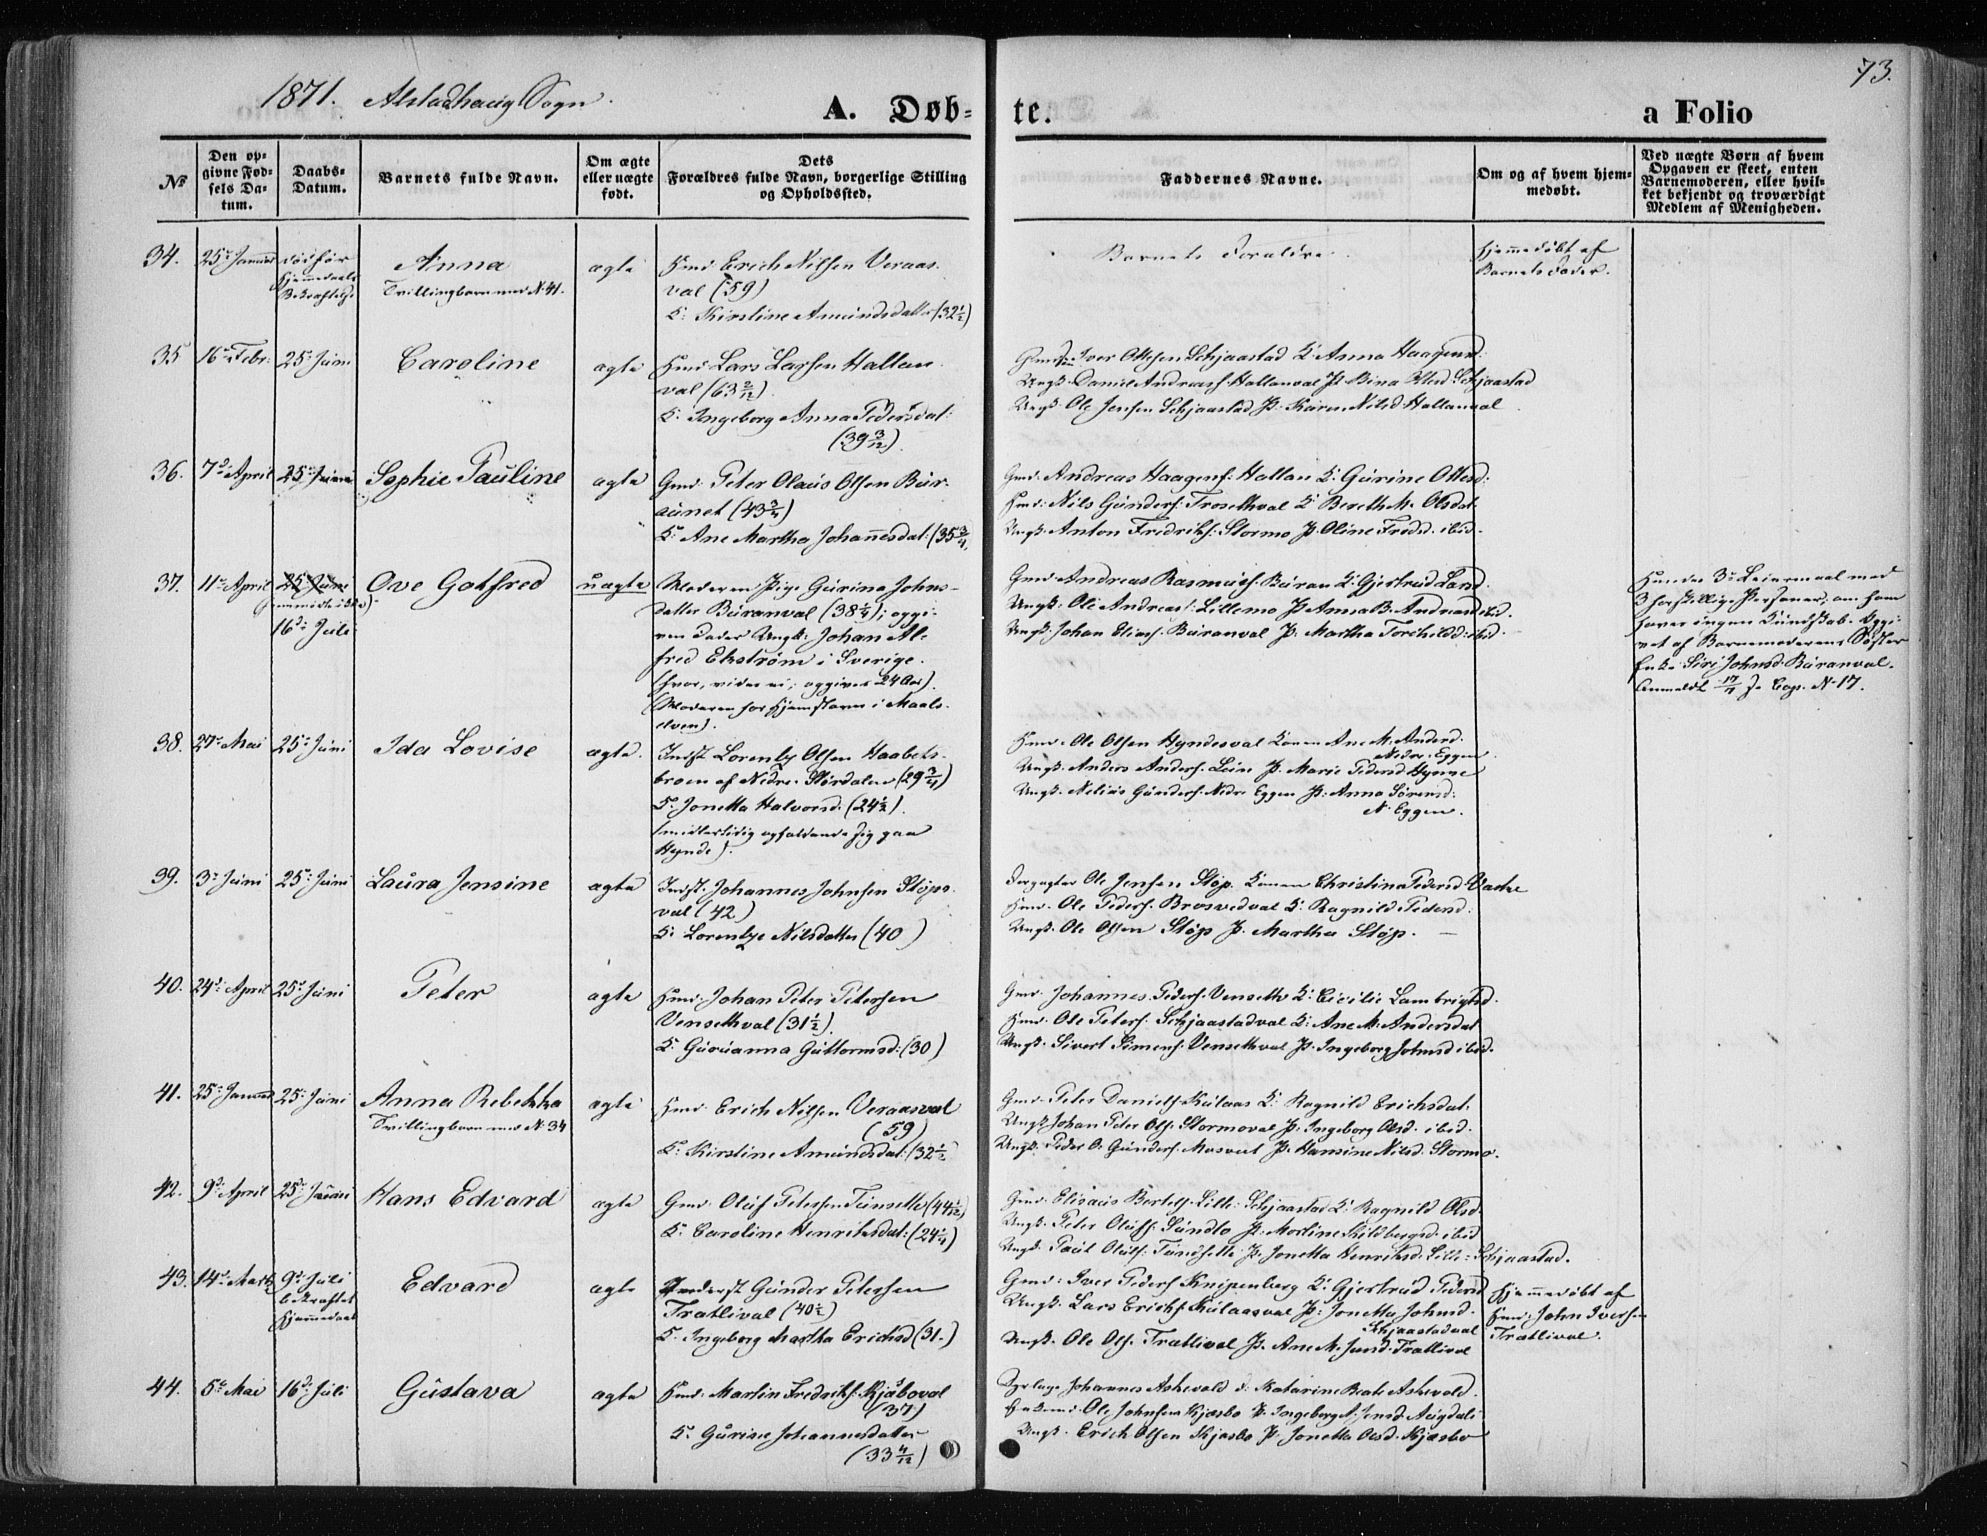 1871. Alstadhaug Sogn. 73.
A. Døb= te. a Folio
No
Den op=
givne Fød=
sels Da=
tum.
Daabs=
Datum.
Barnets fulde Navn.
Om ægte
eller uægte
født.
Dets
Forældres fulde Navn, borgerlige Stilling
og Opholdssted.
Faddernes Navne.
Om og af hvem hjem=
medøbt.
Ved uægte Børn af hvem
Opgaven er skeet, enten
Barnemoderen, eller hvil=
ket bekjendt og troværdigt
Medlem af Menigheden.
34. 25. Januar død før
Hjemmedaabs
Bekræftelse
Anna
Tvillingbarn med N. 41.
ægte
Hmd. Erich Nilsen Veraas=
val (59)
K. Kirstine Amundsdatter (32½)
Barnets Forældre.
Hjemmedøbt af
Barnets Fader.
35 16. Febr. 25. Juni
Caroline
ægte
Hmd. Lars Larsen Hallan=
val (63 2/12)
K. Ingeborg Anna Pedersdat:
(39 3/12)
Gmd. Iver Ottesen Schjaastad K. Anna Haagensd.
Ungk. Daniel Andreass. Hallanval P. Bina Schjaastad
Ungk. Ole Jensen Schjaastad P. Karen Nilsd. Hallanval
36. 7d April 25. Juni
Sophie Pauline
ægte
Gmd. Peter Olaus Olsen Bur=
aunet (43¾)
K. Ane Martha Johannesdat: (35¾)
Gmd. Andreas Haagens. Hallan K. Gurine Ottesd:
Hmd. Nils Gunders. Trosethval K. Bereth M. Olsdat.
Ungk. Anton Fredriks. Stormo P. Oline Fredsd. ibid.
37. 11. April 25. Juni
16d Juli
Ove Gotfred
uægte
Moderen Pige Gurine Johns=
datter Buranval (38¼); opgi=
ven Fader Ungk. Johan Al=
fred Ekstrøm i Sverige.
(hvor, vides ei; opgives 24 Aar).
(Moderen har Hjemstavn i Maals=
elven).
Gmd. Andreas Rasmuss. Buran K. Gjertrud Larsd.
Ungk. Ole Andreas. Lillemo P. Anna B. Andreasd. ibid.
Ungk. Johan Elias. Buranval P. Martha Torchildsd. ibid.
Hendes 3. Leiermaal med
3 forskjellige Personer, om ham
haves ingen Kundskab. Opgi=
vet af Barnemoderens Søster
Enke Siri Johnsd. Buranval.
Anmeldt 17/7 Cop. N. 17.
38. 27. Mai 25. Juni
Ida Lovise
ægte.
Indst. Lorents Olsen Haabets=
broen af Nedre Størdalen (29¾)
K. Jonetta Halvorsd. (24½).
(midlertidig opholdende sig paa
Hynde).
Hmd. Ole Olsen Hyndesval Konen Ane M. Andersd.
Nedre Eggen.
Ungk. Anders Anders. Lein P. Marie Pedersd. Hynne
Ungk. Nelius Gunders. Nedre Eggen P. Anna Sørensd:
N. Eggen.
39. 3. Juni 25. Juni
Laura Jensine
ægte
Indst. Johannes Johnsen Støps=
val (42)
K. Lorentze Nilsdatter (40)
Forpagter Ole Jensen Støp. Konen Christina Pedersd. Vache
Hmd. Ole Peders. Brosvedval K. Ragnild Pedersd.
Ungk. Ole Olsen Støp P. Martha Støp.
40. 24d April 25. Juni
Peter
ægte
Hmd. Johan Peter Petersen
Vensethval (31½).
K. Guruanna Guttormsd: (30)
Gmd. Johannes Peders. Venseth K. Cicilie Lambrigtsd.
Hmd. Ole Peters. Schjaastadval K. Ane M. Andersdat.
Ungk. Sivert Simens. Vensethval P. Ingeborg Johnsd. ibid.
41. 25. Januar 25. Juni
Anna Rebekka
Tvillingbarn med N. 34
ægte
Hmd. Erich Nilsen Veraasval
(59)
K. Kirstine Amundsdat: (32½)
Gmd. Peter Daniels. Kulaas K. Ragnild Erichsdat.
Ungk. Johan Peter Ols. Stormoval P. Ingeborg Olsd. ibid.
Ungk. Peder O. Gunders. P. Hansine Nilsd. Stormo.
42. 9d April 25. Juni
Hans Edvard
ægte
Gmd. Oluf Petersen Tunsette (44½)
K. Caroline Henriksdat: (24¼)
Gmd. Elisæus Bertels. Lille Schjaastad K. Ragnild Olsd.
Ungk. Peter Olufs. Sundlo P. Mortine Kildbergsd. ibid
Ungk. Paul Olufs. Tunsette P. Jonetta Henriksd. Lille-Schjaastad.
43. 14. Marts 9d Juli
bekræftet
Hjemmedaab
Edvard
ægte
Gunder Petersen
Trætlival (40½)
K. Ingeborg Martha Erichsd (31.)
Gmd. Iver Peders. Knipenberg K. Gjertrud Pedersd.
Ungk. Lars Erichs. Kulaasval P. Jonetta Johnsd.
Schjaastadval
Ungk. Ole Ols. Trætlival P. Ane M. Jensd. Trætlival
Hjemmedøbt af
Hmd. John Iversen
Trætlival.
44. 5. Mai 16d Juli
Gustava
ægte
Hmd. Martin Fredriks. Kjæsboval
(37)
K. Gurine Johannesdatter
(33 4/12)
Johannes Askevold Katarine Beate Askevold.
Ole Johnsen Kjæsbo P. Ingeborg A. Jensd. Augdal
Ungk. Erich Olsen Kjæsbo P. Jonetta Olsd. Kjæsbo